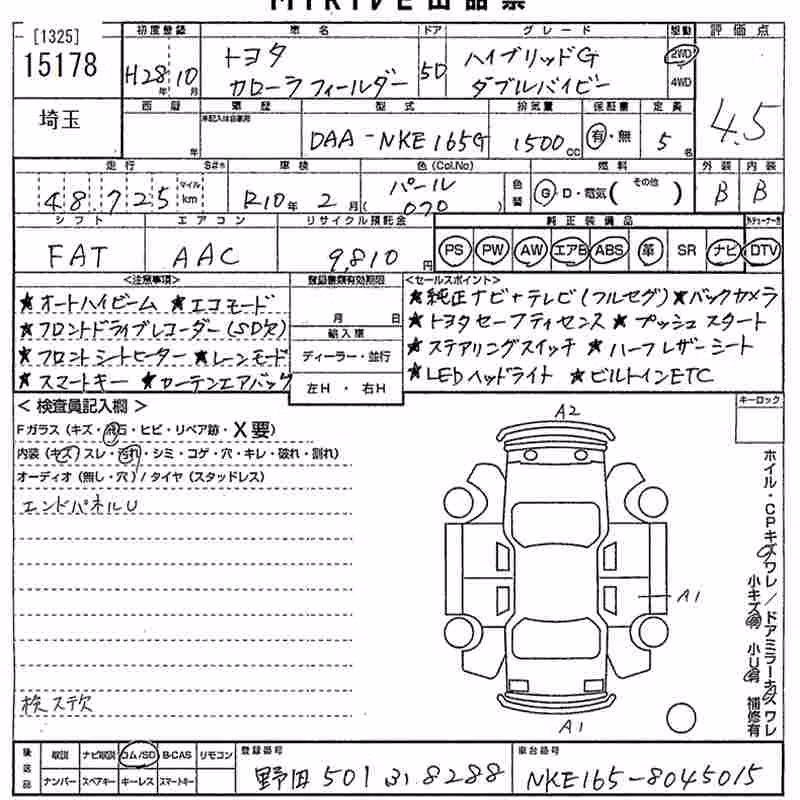 MIRIVE出品票
[1325]
15178
初度登録 車名 ドア グレード 駆動 評価点
H28年 10月 トヨタ カローラフィールダー 5D ハイブリッドG ダブルバイビー 2WD 4WD 4.5
埼玉
西暦 車歴 型式 排気量 保証書 定員
年 未記入は自家用 DAA-NKE165G 1500cc 有・無 5名
走行 S#※ 車検 色(Col.No) 燃料 外装 内装
48,725 マイル km R10年 2月 パール (070) 色替 G・D・電気( その他 ) B B
シフト エアコン リサイクル預託金 純正装備品
FAT AAC 9,810円 PS PW AW エアB ABS 革 SR ナビ DTV
<注意事項>
★オートハイビーム ★エコモード
★フロントドライブレコーダー(SD欠)
★フロントシートヒーター ★レーンモード
★スマートキー ★カーテンエアバッグ
登録書類有効期限
月 日
輸入車
ディーラー・並行
左H ・ 右H
<セールスポイント>
★純正ナビ+テレビ(フルセグ)★バックカメラ
★トヨタセーフティセンス ★プッシュスタート
★ステアリングスイッチ ★ハーフレザーシート
★LEDヘッドライト ★ビルトインETC
キーロック
< 検査員記入欄 >
Fガラス(キズ・飛石・ヒビ・リペア跡・X要)
内装(キズ・スレ・汚れ・シミ・コゲ・穴・キレ・破れ・割れ)
オーディオ(無し・穴)/タイヤ(スタッドレス)
エンドパネルU
検ステ欠
A2
A1
A1
ホイル・CPキズワレ/ドアミラーキズワレ
小キズ有 小U有 補修有
後送品 取説 ナビ取説 ロム/SD B-CAS リモコン
ナンバー スペアキー キーレス スマートキー
登録番号
野田 501 る 8288
車台番号
NKE165-8045015